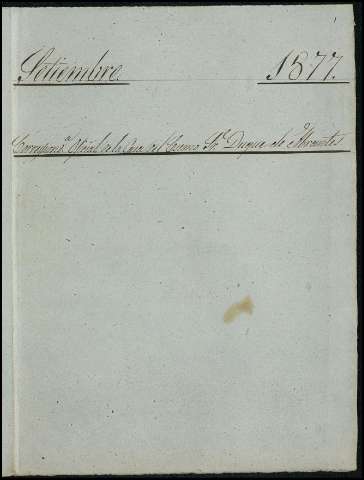 Setiembre 1877.
Correspond.ª Oficial de la Casa del Excmo Sr. Duque de Abrantes